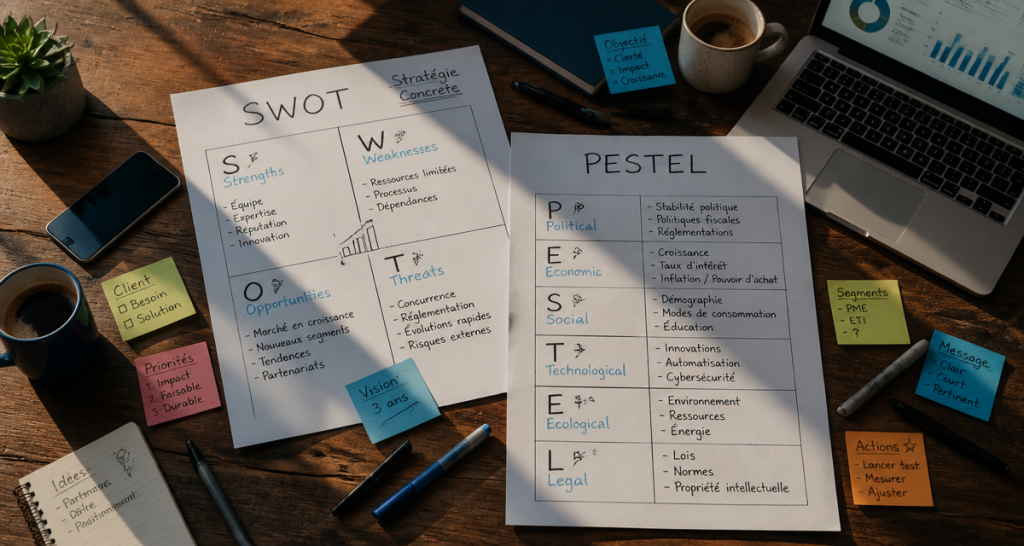 SWOT
Stratégie
Concrete
S
Strengths
- Équipe
- Expertise
- Réputation
- Innovation
W
Weaknesses
- Ressources limitées
- Processus
- Dépendances
O
Opportunities
- Marché en croissance
- Nouveaux segments
- Tendences
- Partenariats
T
Threats
- Concurrence
- Réglementation
- Évolutions rapides
- Risques externes
PESTEL
P
Political
- Stabilité politique
- Politiques fiscales
- Réglementations
E
Economic
- Croissance
- Taux d'intérêt
- Inflation / Pouvoir d'achat
S
Social
- Démographie
- Modes de consommation
- Éducation
T
Technological
- Innovations
- Automatisation
- Cybersécurité
E
Ecological
- Environnement
- Ressources
- Énergie
L
Legal
- Lois
- Normes
- Propriété intellectuelle
Objectif
- Clarté
- Impact
- Croissance
Client
Besoin
Solution
Priorités
1. Impact
2. Faisable
3. Durable
Vision:
3 ans
Idées:
- Partenaire
- Offre
- Positionnement
Segments
- PME
- ETI
- ?
Message
- Clair
- Court
- Pertinent
Actions
- Lancer test
- Mesurer
- Ajuster